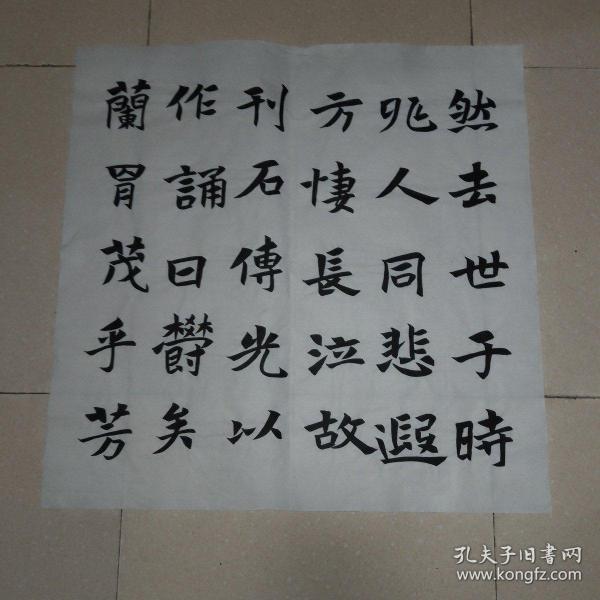 然去世于時
兆人同悲遐
方悽長泣故
刊石傳光以
作誦曰欝矣
蘭胃茂乎芳
孔夫子旧書网
www.kongfz.com